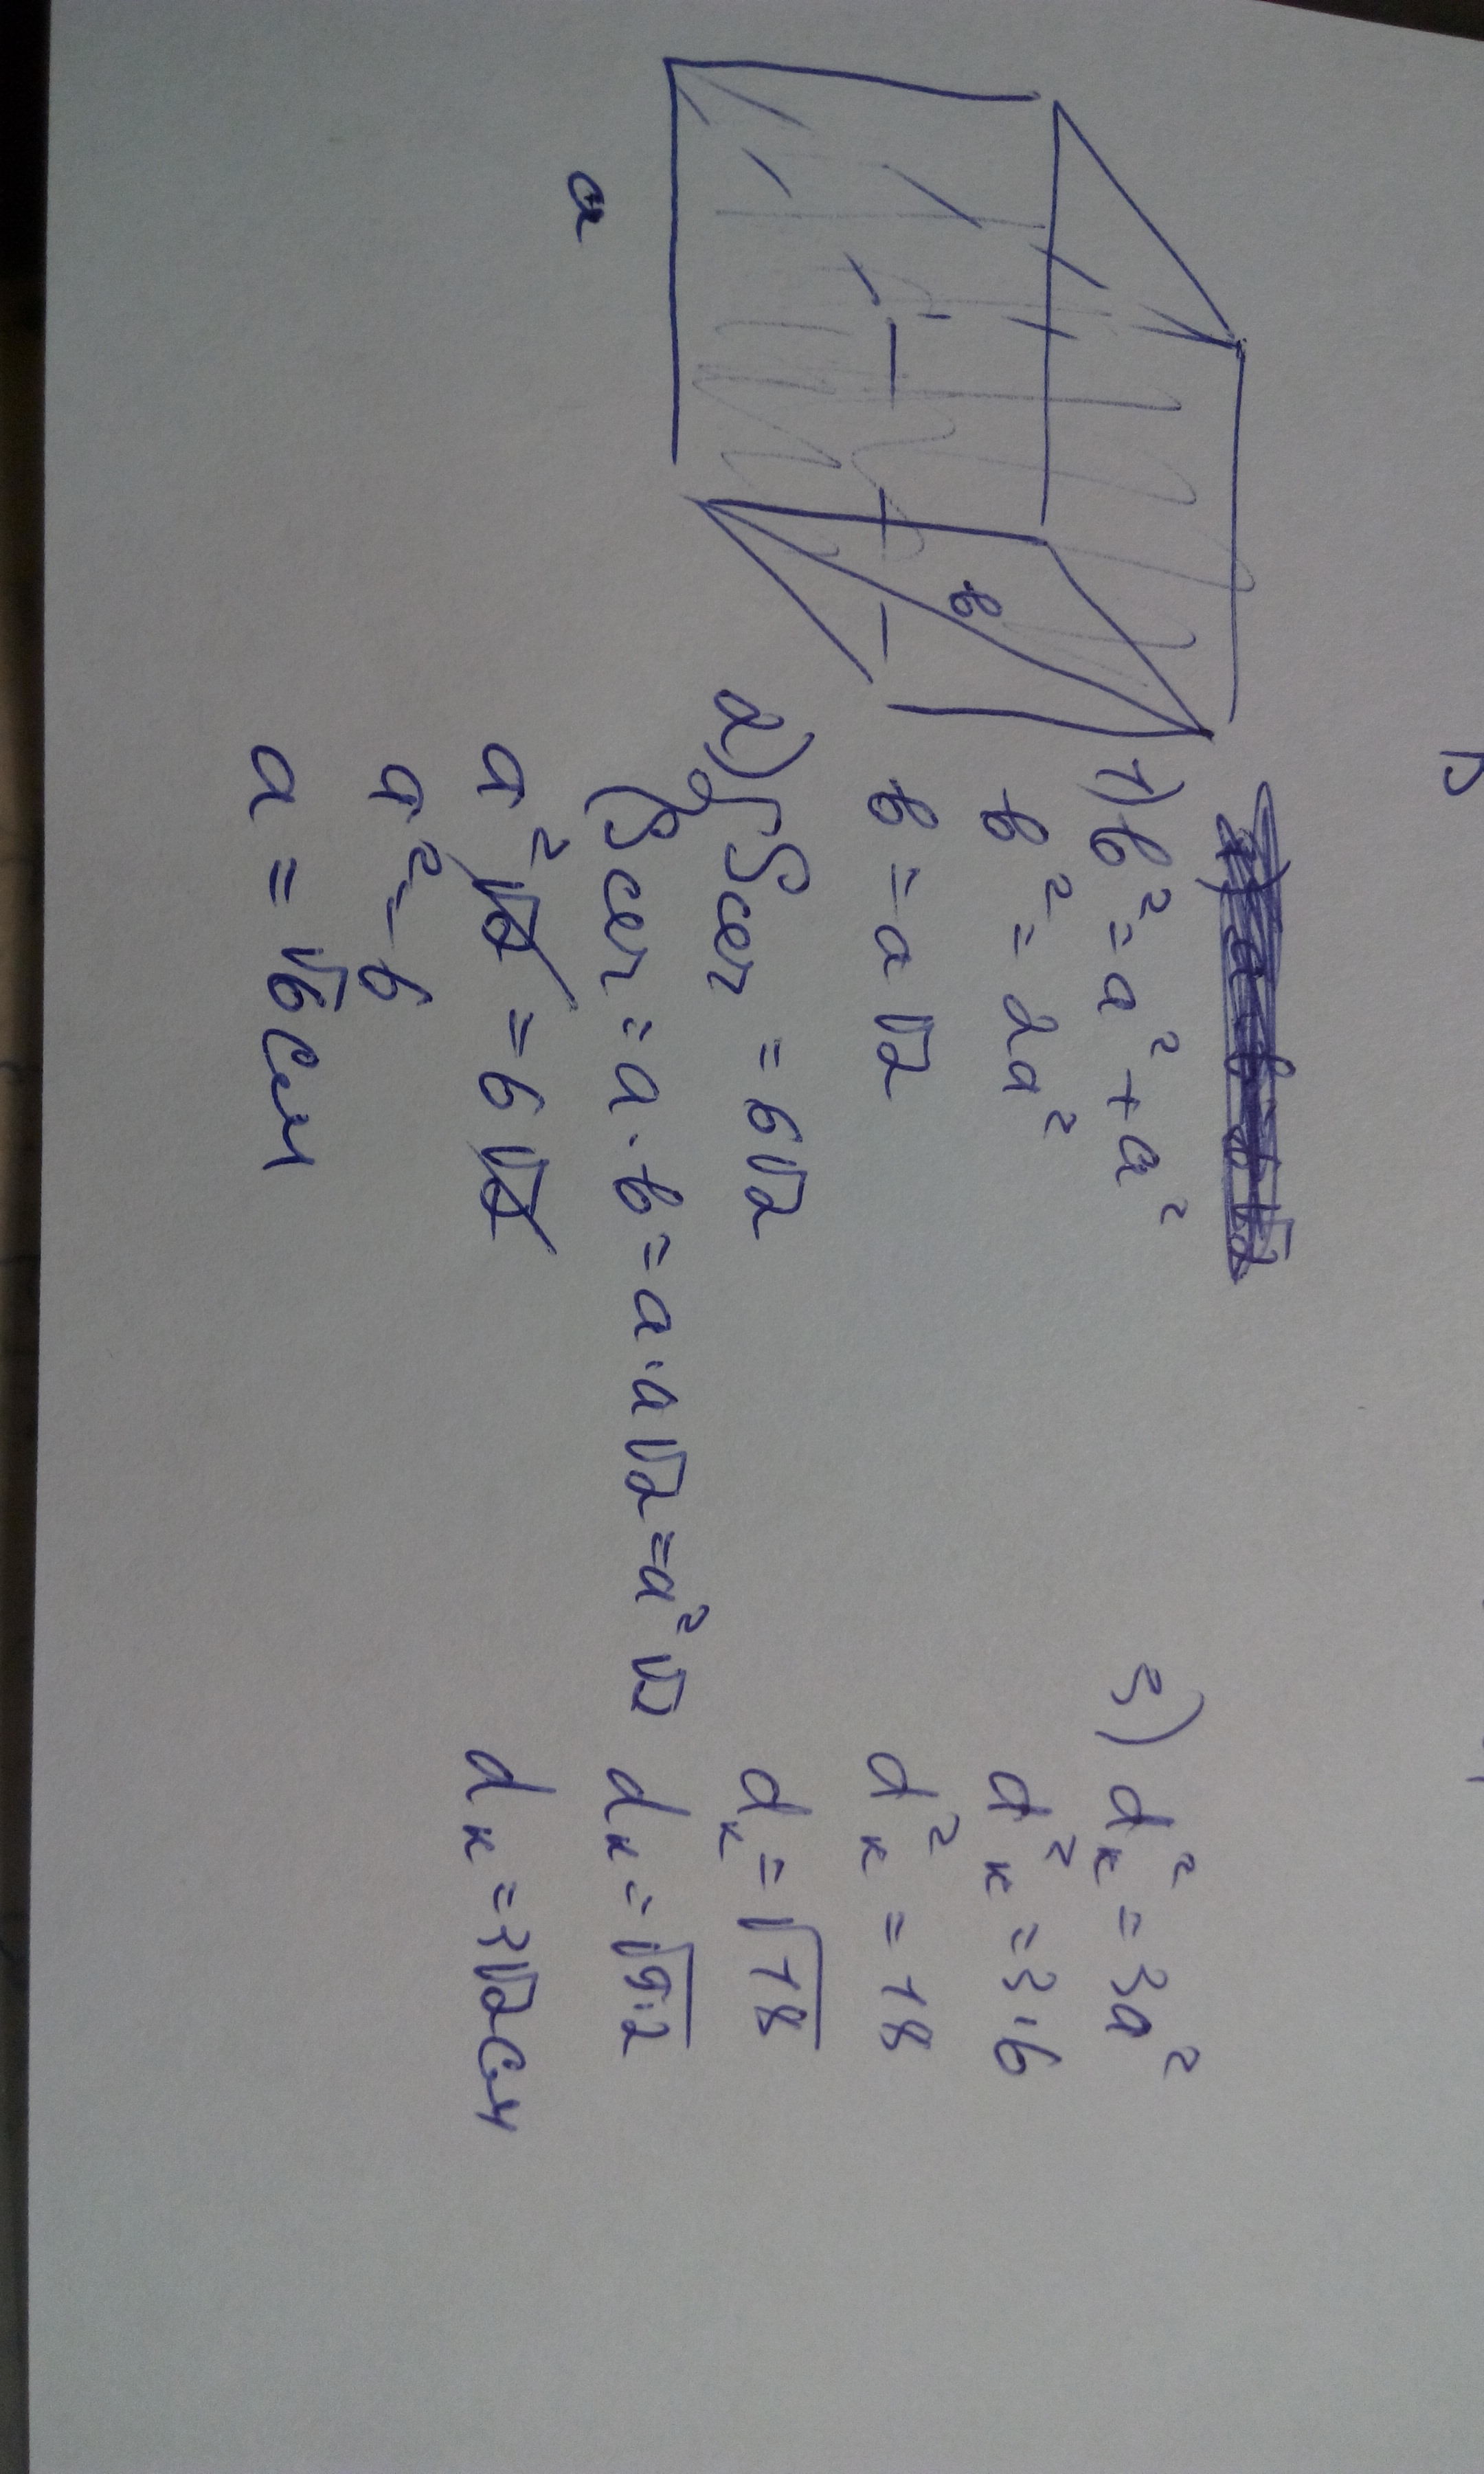 a
в
1) в² = a² + a²
в² = 2a²
в = a√2
2) { Sсеч = 6√2
Sсеч = a · в = a · a√2 = a²√2
a²√2 = 6√2
a² = 6
a = √6 см
3) dк² = 3a²
d²к = 3·6
d²к = 18
dк = √18
dк = √9·2
dк = 3√2 см